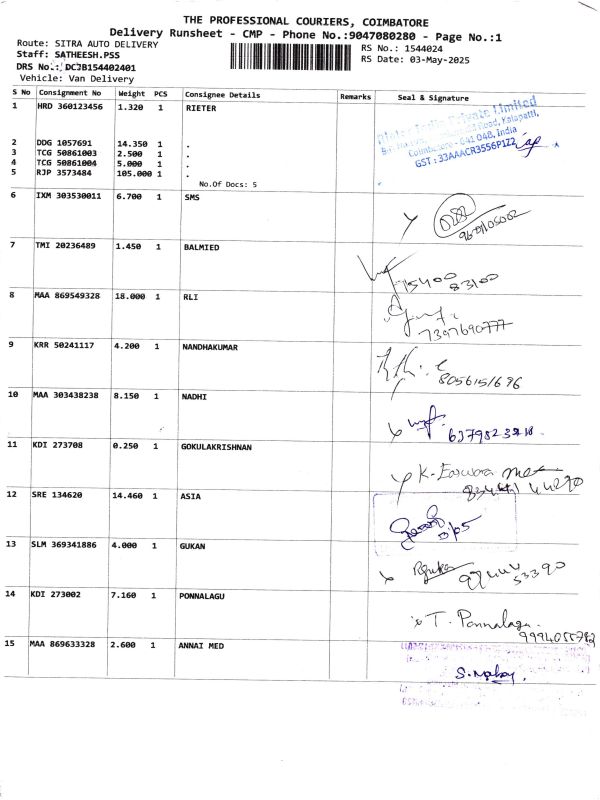 THE PROFESSIONAL COURIERS, COIMBATORE
Delivery Runsheet - CMP - Phone No.:9047080280 - Page No.:1
Route: SITRA AUTO DELIVERY
RS No.: 1544024
Staff: SATHEESH.PSS
RS Date: 03-May-2025
DRS No.: DCJB154402401
Vehicle: Van Delivery
S No Consignment No Weight PCS Consignee Details Remarks Seal & Signature
1 HRD 360123456 1.320 1 RIETER
Rieter India Private Limited
Coimbatore - 641 048, India
GST : 33AAACR3556P1Z2
2 DDG 1057691 14.350 1 .
3 TCG 50861003 2.500 1 .
4 TCG 50861004 5.000 1 .
5 RJP 3573484 105.000 1 .
No.Of Docs: 5
6 IXM 303530011 6.700 1 SMS
7 TMI 20236489 1.450 1 BALMIED
75400
83100
8 MAA 869549328 18.000 1 RLI
7397690777
9 KRR 50241117 4.200 1 NANDHAKUMAR
8056151696
10 MAA 303438238 8.150 1 NADHI
11 KDI 273708 0.250 1 GOKULAKRISHNAN
12 SRE 134620 14.460 1 ASIA
13 SLM 369341886 4.000 1 GUKAN
53390
14 KDI 273002 7.160 1 PONNALAGU
T. Ponnalagu
15 MAA 869633328 2.600 1 ANNAI MED